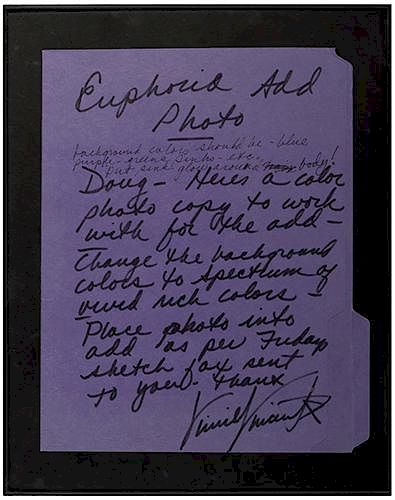 Euphoria Add
Photo
background colors should be - blue
purple - greens, pinks - etc.
but pink glow around body!
Doug - Here's a color
photo copy to work
with for the add -
Change the background
colors to spectrum of
vivid rich colors -
Place photo into
add as per Fridays
sketch fax sent
to you - Thank